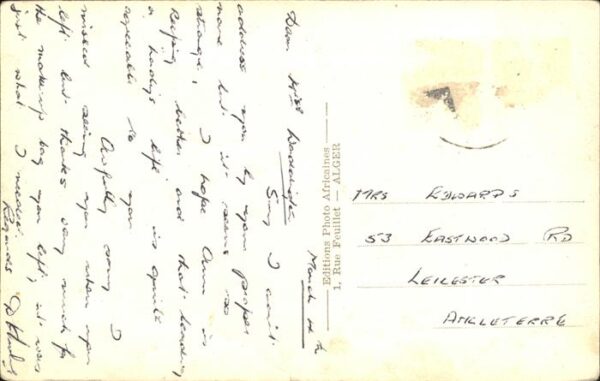 March 14th
Dear Mrs
Sorry I can't
address you by your proper
name but it seems so
strange, I hope Ann is
keeping better and that landing
a lady's life is quite
agreeable to you
Awfully sorry I
missed seeing you when you
left but thanks very much for
the make-up bag you left, it was
just what I needed.
Regards
Editions Photo Africaines
1, Rue Feuillet — ALGER
MRS EDWARDS
53 EASTWOOD RD
LEICESTER
ANGLETERRE